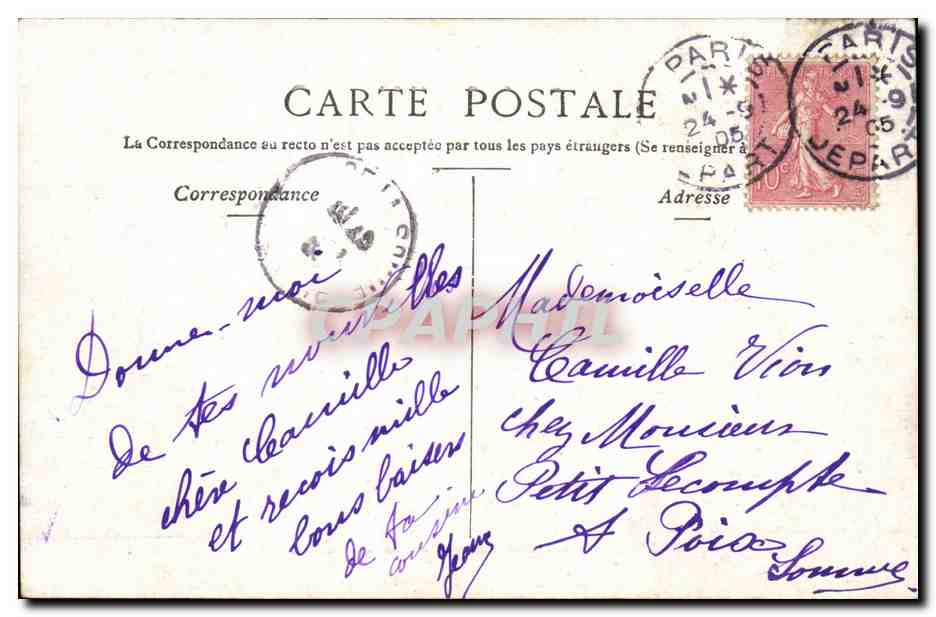 CARTE POSTALE
La Correspondance au recto n'est pas acceptée par tous les pays étrangers (Se renseigner à
Correspondance
Adresse
PARIS
24 -9
05
DEPART
PARIS
24 -9
05
DEPART
10c
CPAPHIL
Donne-moi
de tes nouvelles
chère Camille
et reçois mille
bons baisers
de ta
cousine
Jeanne
Mademoiselle
Camille Vion
chez Monsieur
Petit Lecompte
A Poix
Somme